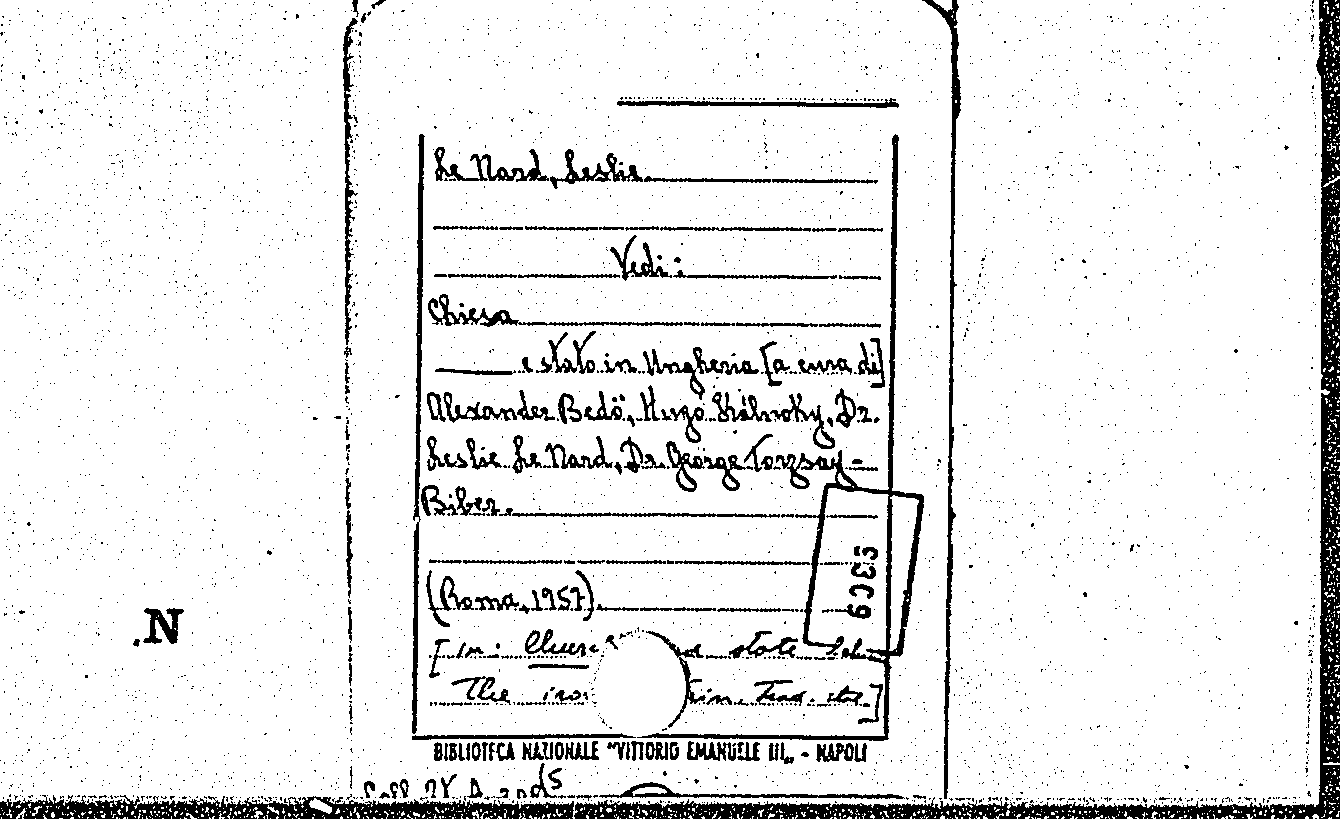 Le Nard, Leslie.
Vedi:
Chiesa
——— e stato in Ungheria [a cura di]
Alexander Bedö, Hugó Kálnoky, Dr.
Leslie Le Nard, Dr. George Torzsay-
Biber.
(Roma, 1957).
[in: state
The Trad.
BIBLIOTECA NAZIONALE "VITTORIO EMANUELE III„ - NAPOLI
.N